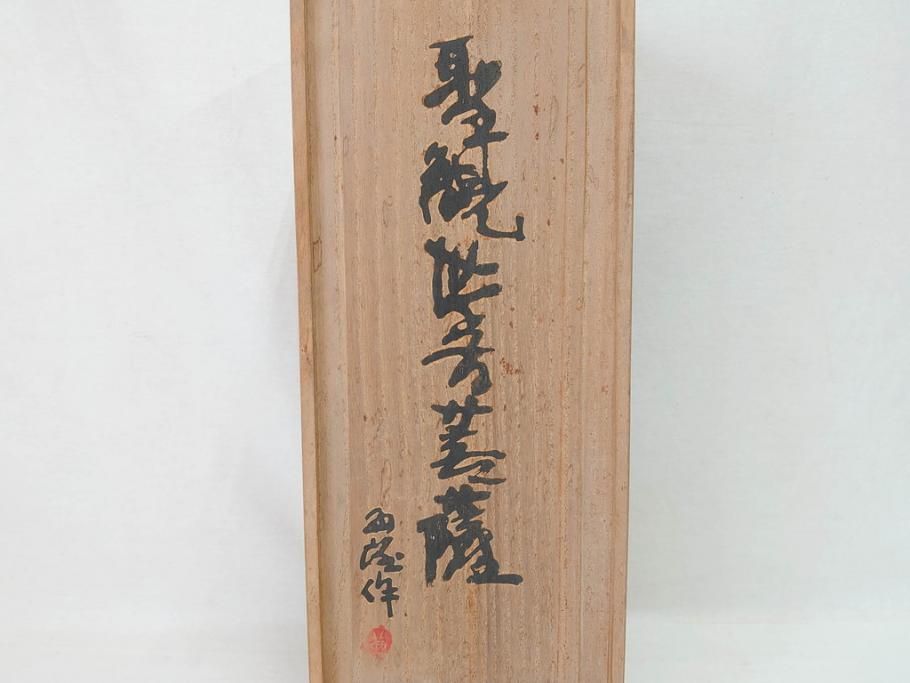 聖観世音菩薩
作